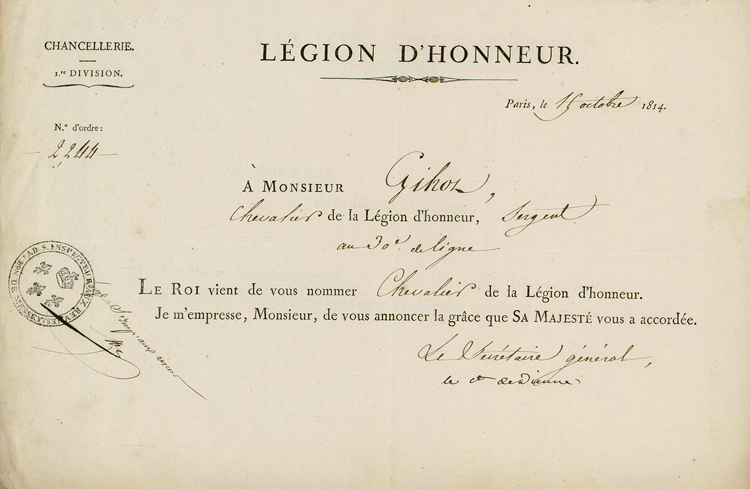 CHANCELLERIE.
1.re DIVISION.
N.º d'ordre:
2,244
LÉGION D'HONNEUR.
Paris, le 15 octobre 1814.
À MONSIEUR Gihoz,
Chevalier de la Légion d'honneur, Sergent
au 30e de ligne
LE ROI vient de vous nommer Chevalier de la Légion d'honneur.
Je m'empresse, Monsieur, de vous annoncer la grâce que SA MAJESTÉ vous a accordée.
Le Secrétaire général,
INSPECTEUR AUX REVUES